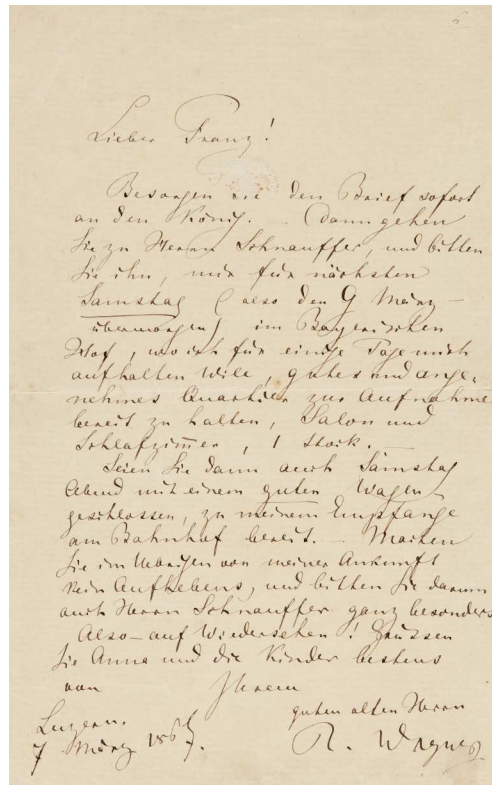 Lieber Franz!
Besorgen sie den Brief sofort
an den König. – Dann gehen
Sie zu Herrn Schnauffer, und bitten
Sie ihn, mir für nächsten
Samstag (also den 9 März –
übermorgen) im Bayerischen
Hof, wo ich für einige Tage mich
aufhalten will, gutes und ange-
nehmes Quartier zur Aufnahme
bereit zu halten, Salon und
Schlafzimmer, 1 Stock. –
Seien Sie dann auch Samstag
Abend mit einem guten Wagen,
geschlossen, zu meinem Empfange
am Bahnhof bereit. – Machen
Sie im Uebrigen von meiner Ankunft
kein Aufhebens, und bitten Sie darum
auch Herrn Schnauffer ganz besonders
Also – auf Wiedersehen! Grüssen
Sie Anna und die Kinder bestens
von Ihrem
guten alten Herrn
Luzern.
7 März 1867.
R. Wagner